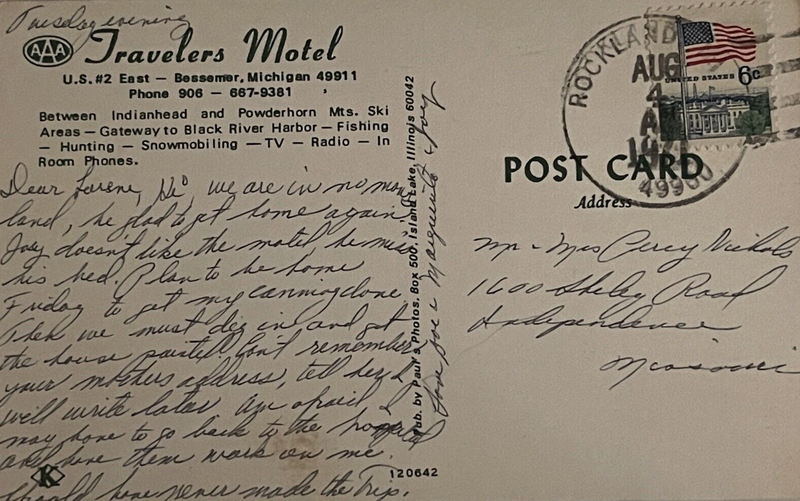 Tuesday evening
AAA Travelers Motel
U.S. #2 East — Bessemer, Michigan 49911
Phone 906 — 667-9381
Between Indianhead and Powderhorn Mts. Ski
Areas — Gateway to Black River Harbor — Fishing
— Hunting — Snowmobiling — TV — Radio — In
Room Phones.
Dear Lorene, we are in no man
land, be glad to get home again.
Joey doesn't like the motel, he miss
his bed. Plan to be home
Friday to get my canning done
Then we must dig in and get
the house painted. Don't remember
your mothers address, tell her I
will write later. Am afraid, I
may have to go back to the hospital
and have them work on me.
Should have never made the Trip.
Love Joe & Marguerite & Joey
K
Pub. by Paul's Photos, Box 500, Island Lake, Illinois 60042
120642
ROCKLAND
AUG
4
1971
49960
UNITED STATES 6c
POST CARD
Address
Mr & Mrs Percy Nichols
1600 Sheley Road
Independence
Missouri